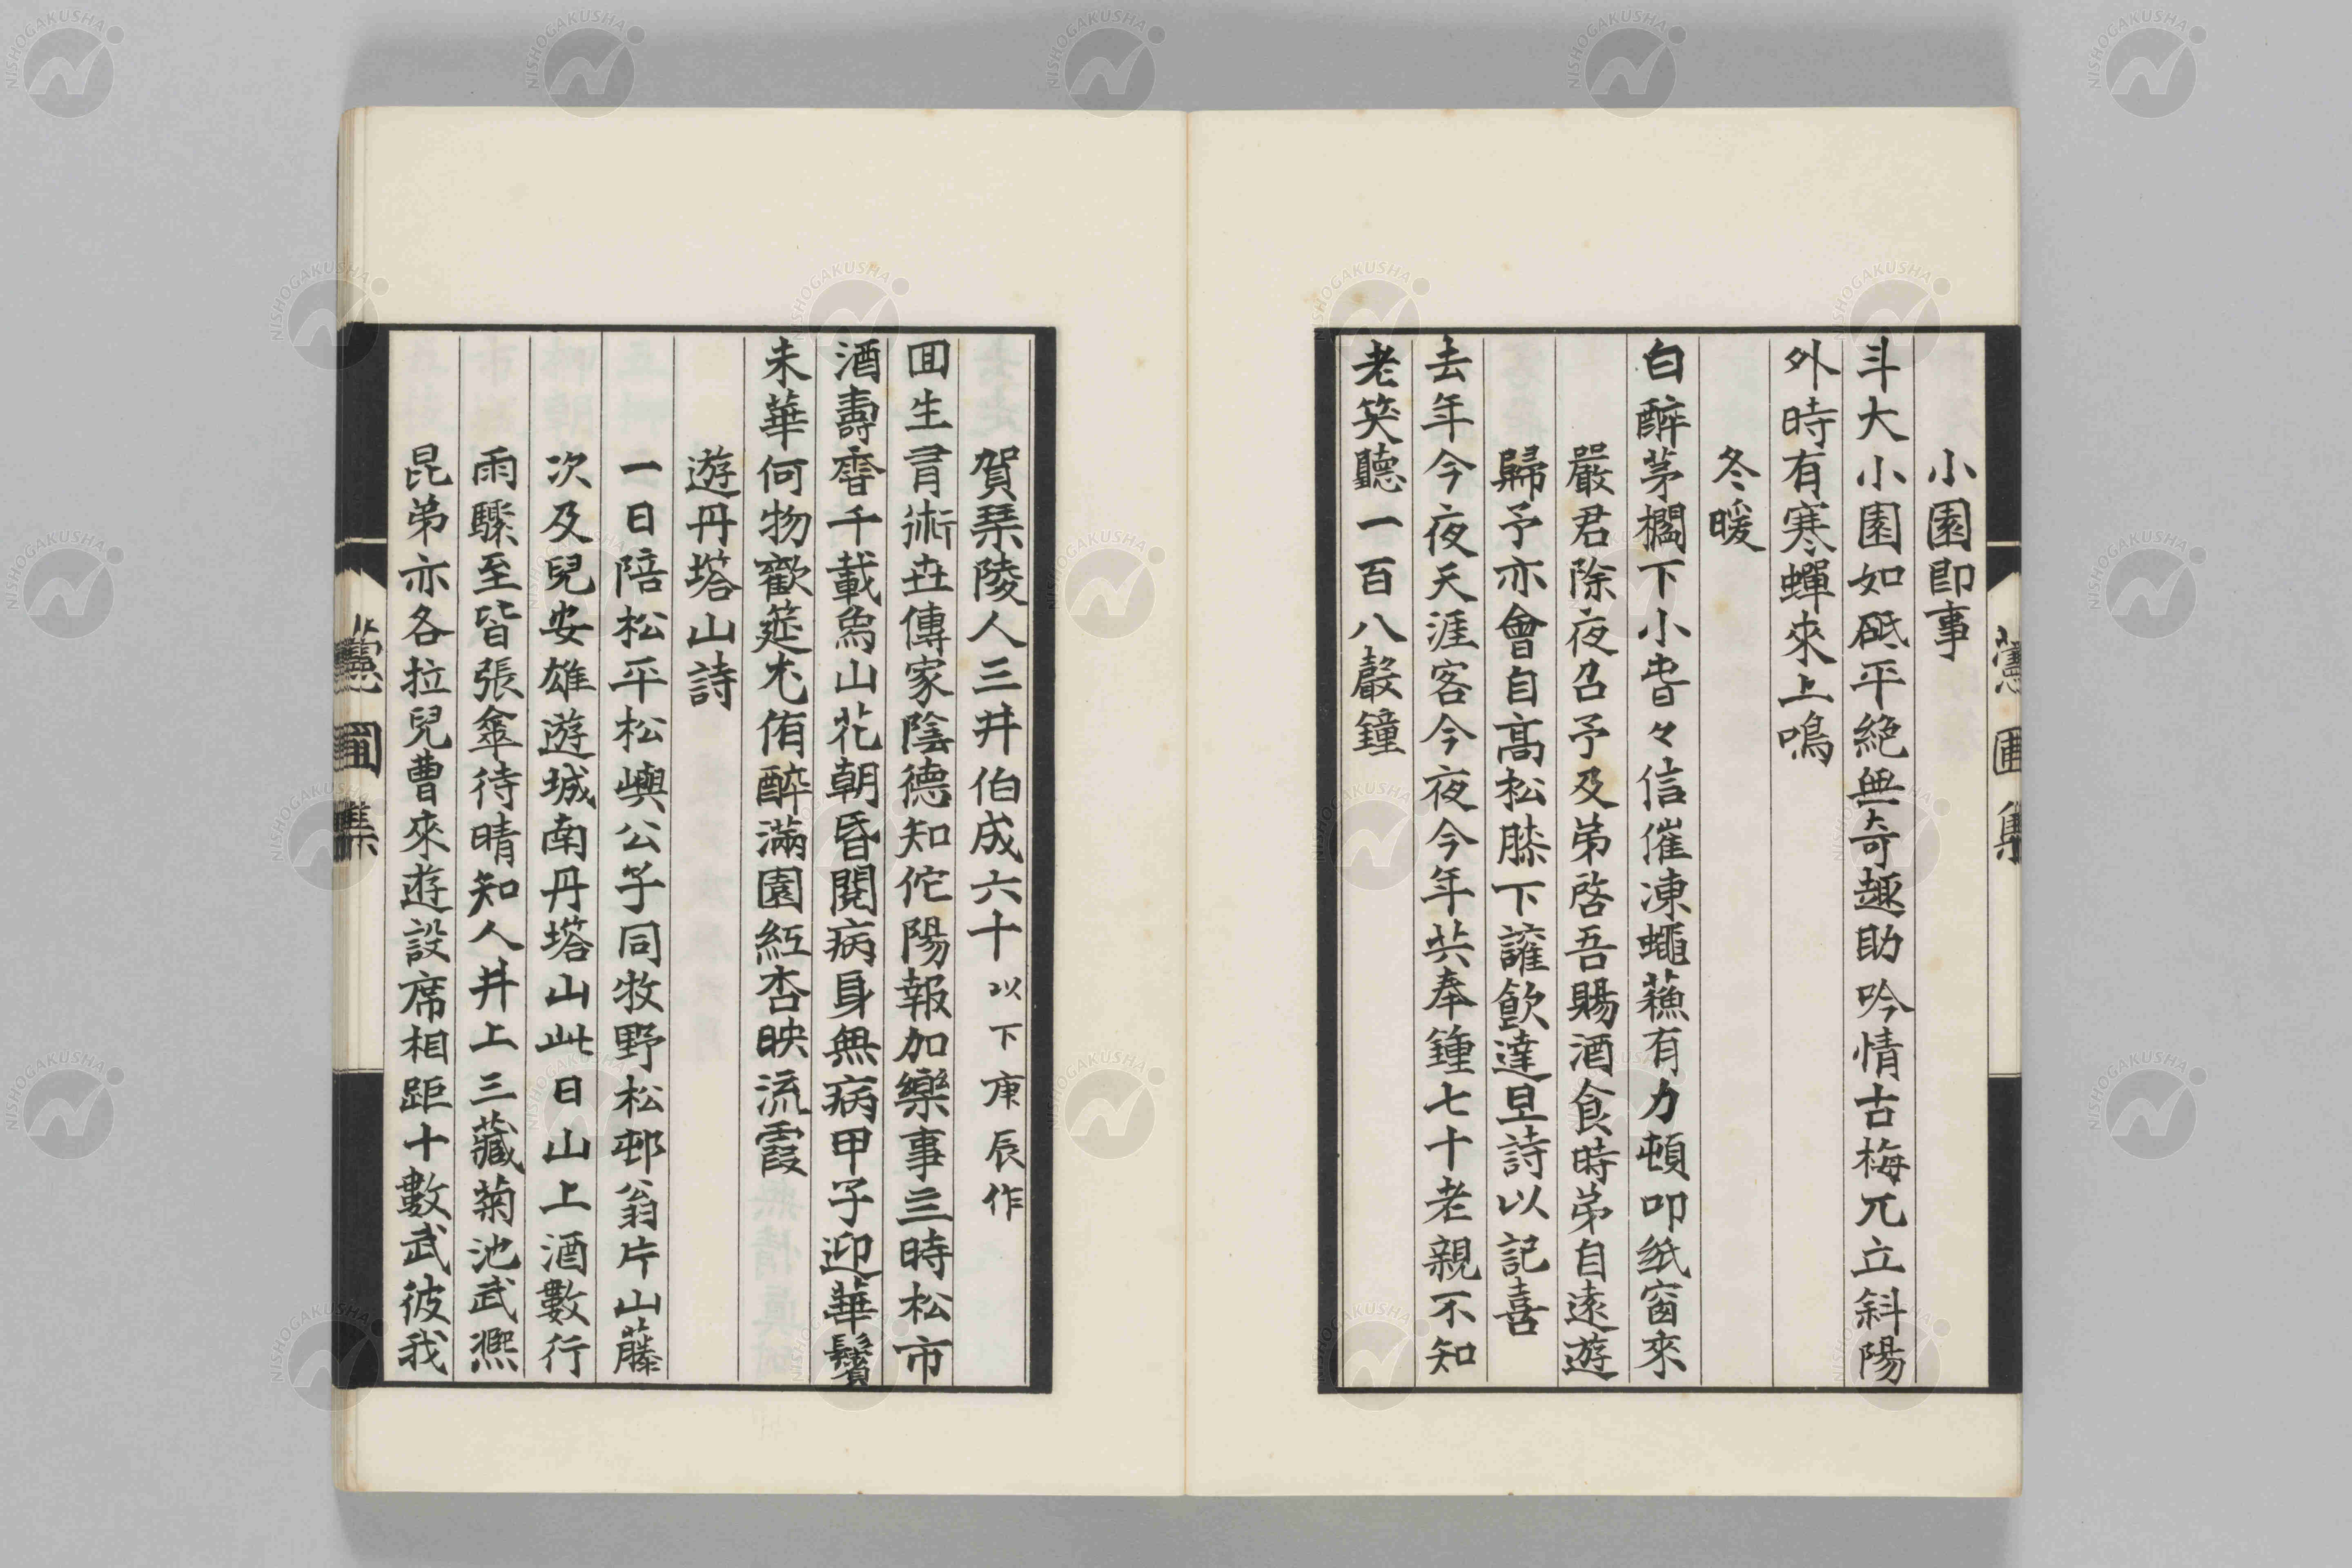 小園即事
斗大小園如砥平絶無奇趣助吟情古梅兀立斜陽
外時有寒蟬來上鳴
冬暖
白醉茅櫚下小眘々信催凍蠅蘓有力頓叩紙窗來
嚴君除夜召予及弟啓吾賜酒食時弟自遠遊
歸予亦會自高松膝下讙飲達旦詩以記喜
去年今夜天涯客今夜今年共奉鍾七十老親不知
老笑聽一百八聲鐘
賀琹陵人三井伯成六十以下庚辰作
回生有術世傳家陰德知佗陽報加樂事三時松市
酒壽香千載烏山花朝昏閱病身無病甲子迎華鬢
未華何物歡筵尤侑醉滿園紅杏映流霞
遊丹塔山詩
一日陪松平松嶼公子同牧野松邨翁片山藤
次及兒安雄遊城南丹塔山此日山上酒數行
雨驟至皆張傘待晴知人井上三藏菊池武凞
昆弟亦各拉兒曹來遊設席相距十數武彼我
蕙圃集